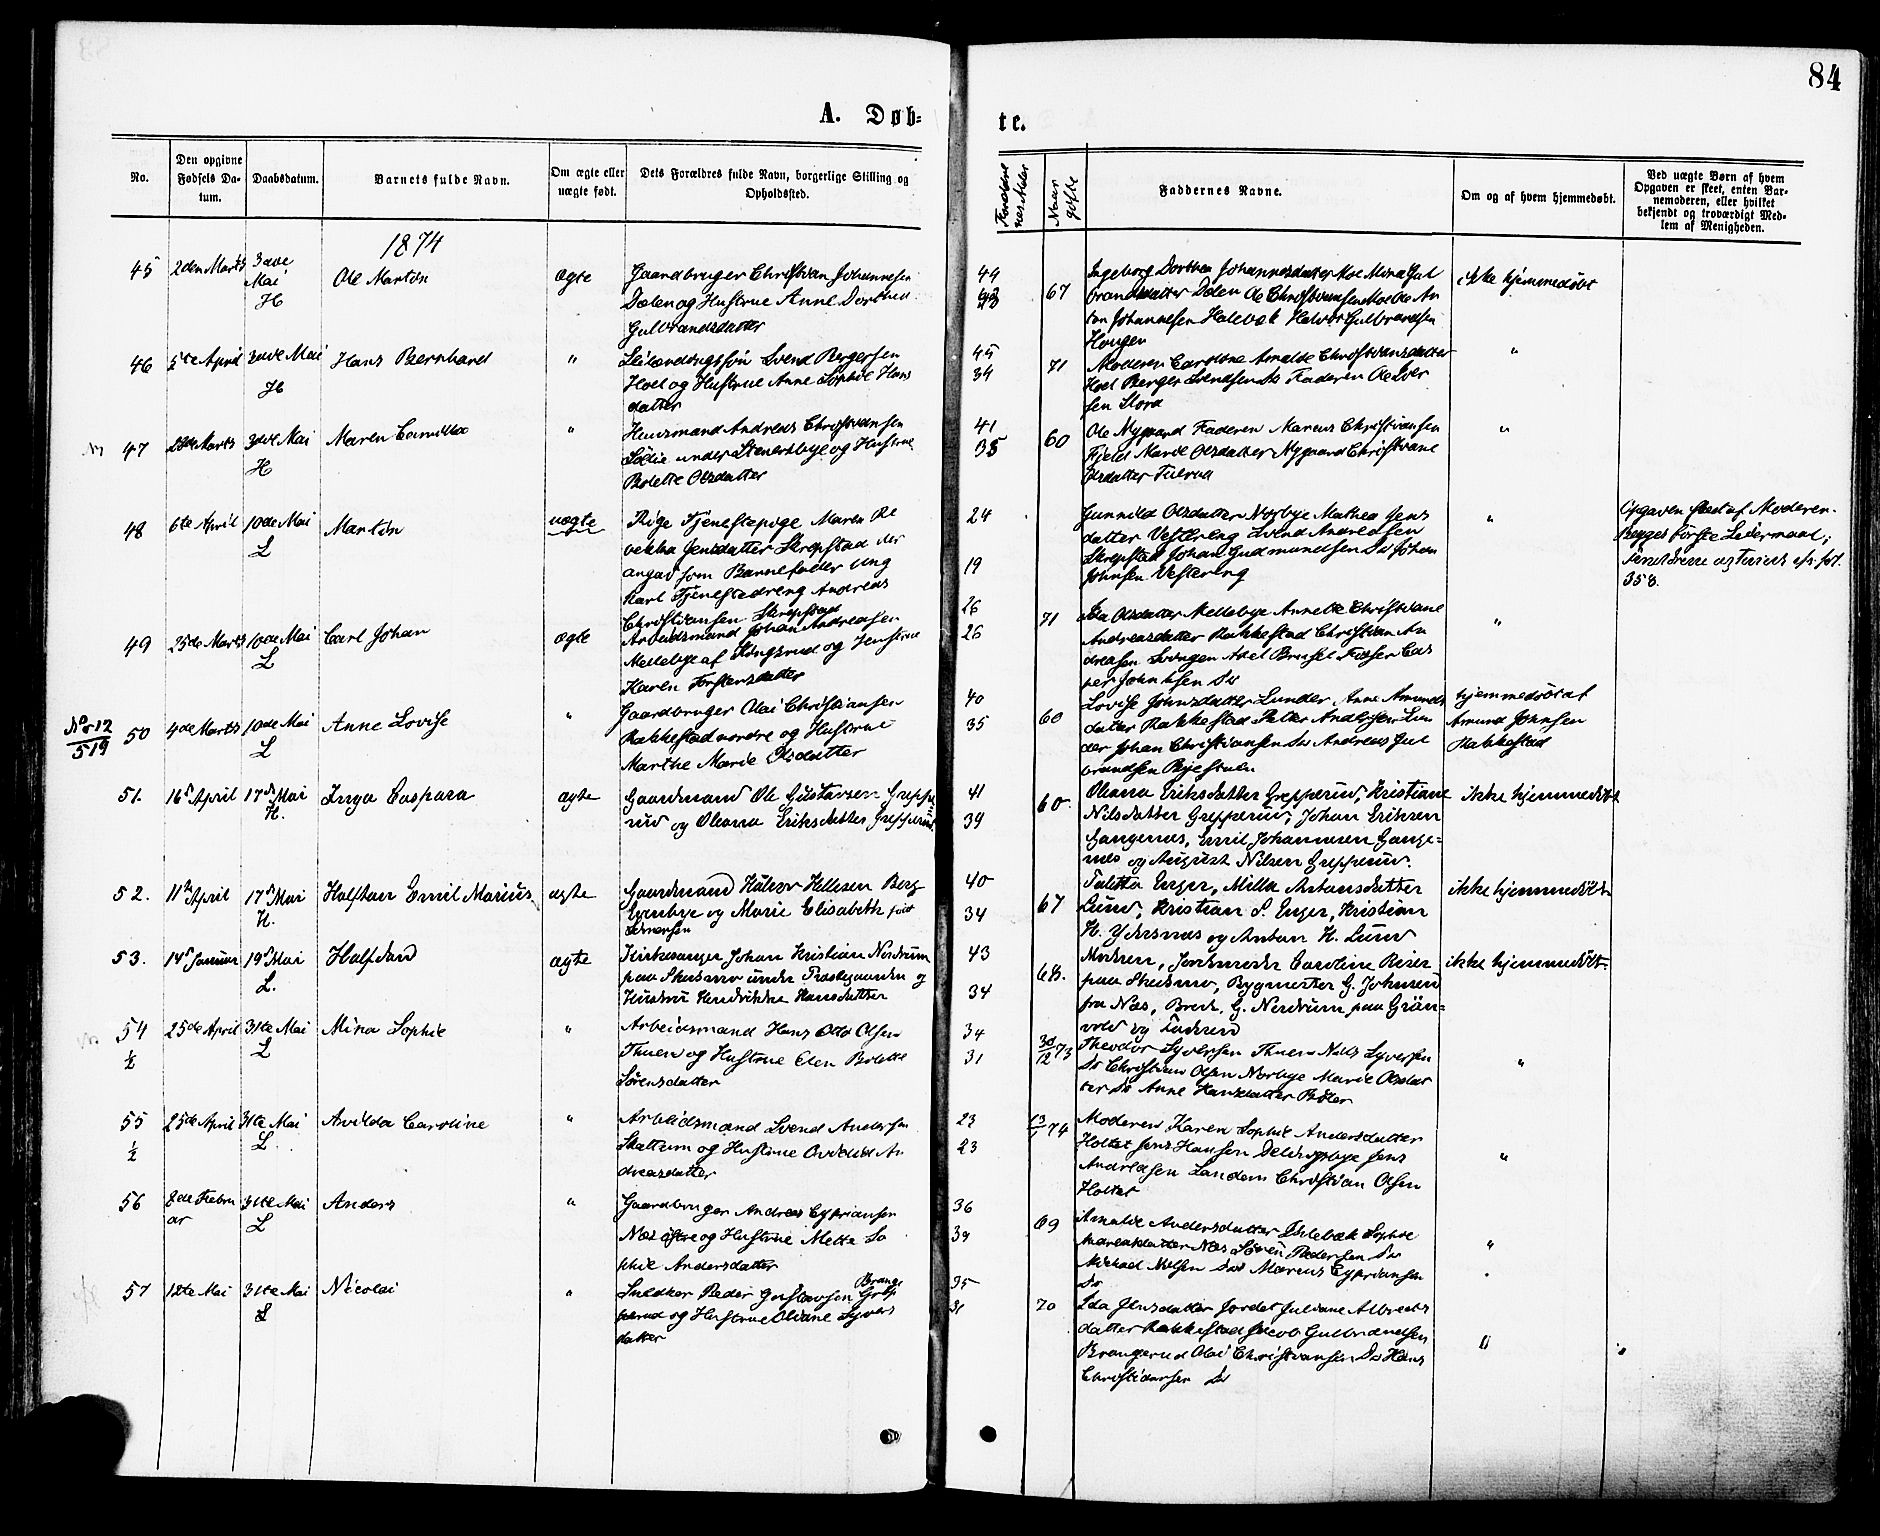 84
A. Døb-
te.
No.
Den opgivne Fødsels Da-tum.
Daabsdatum.
Barnets fulde Navn.
Om ægte eller uægte født.
Dets Forældres fulde Navn, borgerlige Stilling og Opholdssted.
Faddernes Navne.
Om og af hvem hjemmedøbt.
Ved uægte Børn af hvem Opgaven er skeet, enten Bar-nemoderen, eller hvilket bekjendt og troværdigt Med-lem af Menigheden.
1874
45 2den Marts 3die Mai H Ole Martin ægte
Gaardbruger Christian Johannesen
Dælen og Hustrue Anne Dorthea
Gulbrandsdatter
44
67
Ingeborg Dorthea Johannesdatter Moe Mina Gul
brandsdatter Dælen Ole Christiansen Moe Ole An
ton Johannesen Holebæk Halvor Gulbrandsen
Hougen
ikke hjemmedøbt
46 5te April 3die Mai H Hans Bernhard "
Svend Bergersen
Hoel og Hustrue Anne Sophie Hans
datter
45
34
71
Moderen Caroline Amalie Christiansdatter
Hoel Berger Svendsen Ds Faderen Ole Iver
sen Stora
"
47 Marts 3die Mai H Maren Camilla "
Huusmand Andreas Christiansen
under Stenersbye og Hustrue
Bolette Olsdatter
41
35
60
Ole Nygaard Faderen Marcus Christiansen
Fjeld Marie Olsdatter Nygaard Christiane
Olsdatter
"
48 6te April 10de Mai L Martin uægte
Pige Tjenestepige Maren Re
bekka Jensdatter Skrepstad der
angav som Barnefader Ung
karl Tjenestedreng Andreas
Christiansen Skrepstad
24
19
Gunnild Olsdatter Norbye Mathea Jens
datter Vestereng Svend Andreasen
Skrepstad Johan Gudmundsen Ds Johan
Johnsen Vestereng
"
Opgaven skeet af Moderen.
Begges første Leiermaal;
358.
49 25de Marts 10de Mai L Carl Johan ægte
Arbeidsmand Johan Andreasen
Mellebye af Kongsrud og Hustrue
Karen Torstensdatter
26
26
71
Ida Olsdatter Mellebye Annette Christiane
Andreasdatter Rakkestad Christian An
dreasen Svingen Axel Fosser Cas
per Johnsen Ds
"
No 12
519
50 4de Marts 10de Mai L Anne Lovise "
Gaardbruger Olai Christiansen
Rakkestad nordre og Hustrue
Marthe Marie Olsdatter
40
35
60
Lovise Johnsdatter Lunder Anne Amunds
datter Rakkestad Petter Andersen Lun
der Johan Christiansen Ds Andreas Gul
brandsen
hjemmedøbt af
Amund Johnsen
Rakkestad
51. 16de April 17de Mai H. Inga Caspara ægte
Gaardmand Ole Gustavsen Greppe
rud og Oleana Eriksdatter Grepperud
41
39
60.
Oleana Eriksdatter Grepperud, Kristiane
Nilsdatter Grepperud, Johan Eriksen
Gangenæs, Emil Johannesen Gange-
næs og August Nilsen Grepperud.
ikke hjemmedøbt
52. 11te April 17de Mai H. Halfdan Emil Marius ægte
Gaardmand Halvor Hellesen Berg
Eyenbye og Marie Elisabeth født
40
34
67
Talitta Enger, Milla Antonsdatter
Lund, Kristian S. Enger, Kristian
H. Ydersnæs og Anton H. Lund
ikke hjemmedøbt
53. 14de Januar 19de Mai L. Halfdan ægte
Kirkesanger Johan Kristian Nordrum
paa Skeismo under Præstegaarden og
Hustru Hendrikke Hansdatter
43
34
68.
Modren, Jordmoder Caroline Riser
paa Skeismo, Bygmester G. Johnsen
fra Næs, Bred. G. Nordrum paa Grøn-
vold og Fadren
ikke hjemmedøbt.
54 25de April 31te Mai L Mina Sophie "
Arbeidsmand Hans Otto Olsen
Thuen og Hustrue Elen Bolette
Sørensdatter
34
31
30/12 73
Theodor Syversen Thuen Niels Syversen
Ds Christian Olsen Norbye Marie Olsdat
ter Ds Anne Hansdatter Bøler
"
55 25de April 31te Mai L. Avilda Caroline "
Arbeidsmand Svend Andersen
Skattum og Hustrue An
dreasdatter
23
23
74
Moderen Karen Sophie Andersdatter
Holtet Jens Hansen Jens
Andreasen Landem Christian Olsen
Holtet
"
56 8de Februar 31te Mai L Anders "
Gaardbruger Andreas Cypriansen
Næs østre og Hustrue Mette So
phie Andersdatter
36
39
69
Amalie Andersdatter Sophie
Næs Søren Pedersen Ds
Michael Nielsen Ds Marcus Cypriansen
Ds
"
57 12te Mai 31te Mai L Nicolai "
Snedker Peder Gustavsen
og Hustrue Oliane Syvers
datter
35
31
70
Ida Jensdatter Jordet Juliane Albrechts
datter Rakkestad Jacob Gulbrandsen
Brangerud Olai Christiansen Ds Hans
Christiansen Ds
"